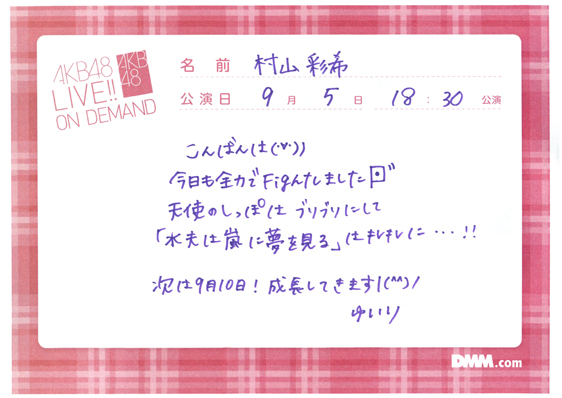 AKB48
LIVE!!
ON DEMAND
AKB
48
名 前 村山 彩希
公演日 9 月 5 日 18 : 30 公演
こんばんは(･ꈊ･))
今日も全力でFightしました
天使のしっぽは ブリブリにして
「水夫は嵐に夢を見る」はキレキレに…!!
次は9月10日!成長してきます!(^^)/
ゆいり
DMM.com